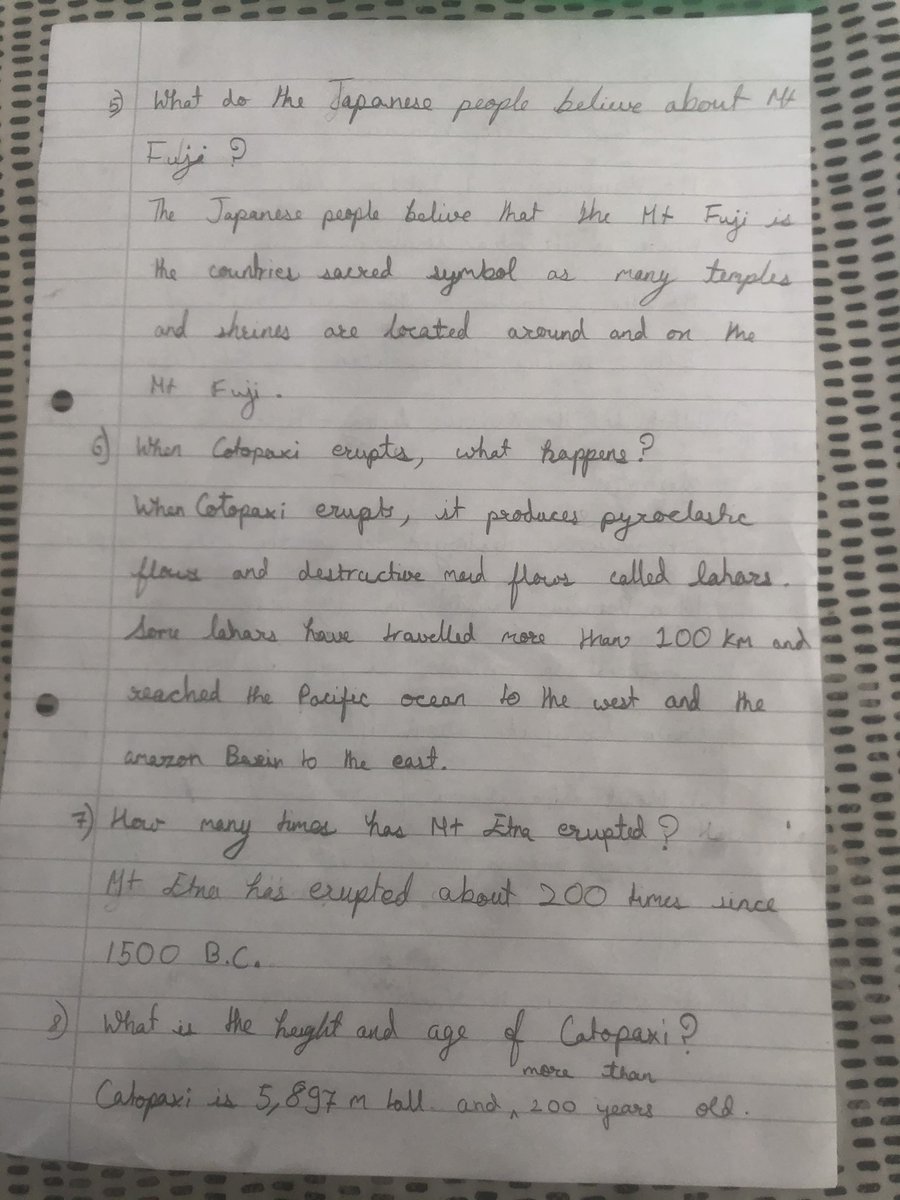 5) What do the Japanese people believe about Mt
Fuji ?
The Japanese people belive that the Mt Fuji is
the countries sacred symbol as many temples
and shrines are located around and on the
Mt Fuji.
6) When Cotopaxi erupts, what happens?
When Cotopaxi erupts, it produces pyroclastic
flows and destructive mud flows called lahars.
Some lahars have travelled more than 100 km and
reached the Pacific ocean to the west and the
amazon Basin to the east.
7) How many times has Mt Etna erupted?
Mt Etna has erupted about 200 times since
1500 B.C.
8) What is the height and age of Catopaxi?
more than
Catopaxi is 5,897 m tall. and ^ 200 years old.